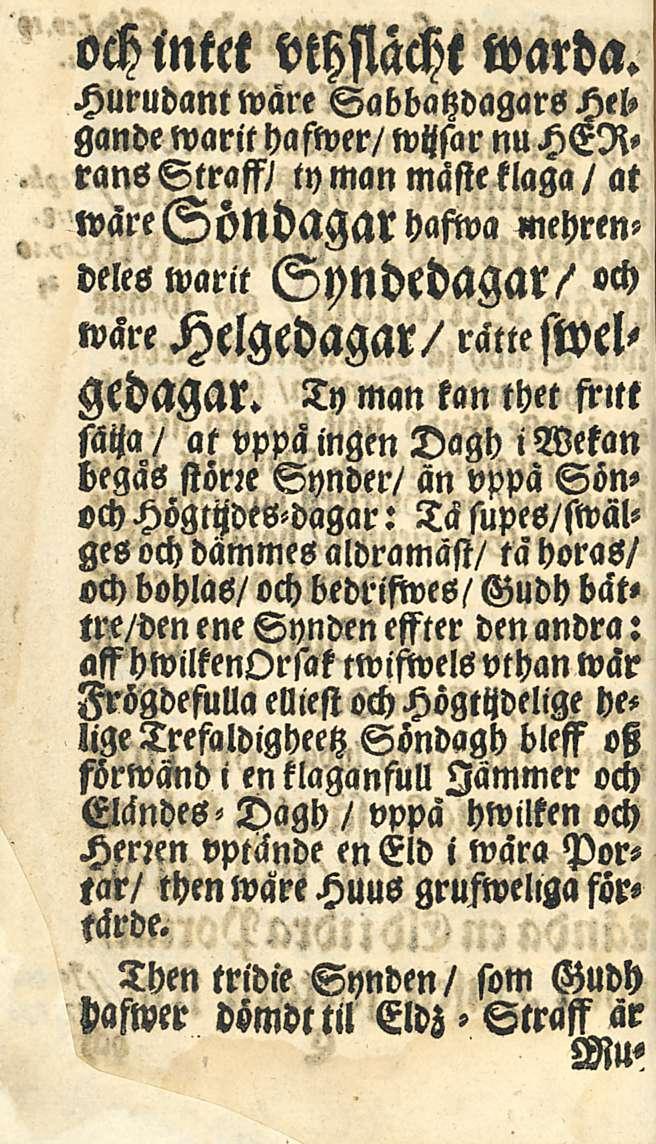 och intet vthslächt warda.
Hurudant wåre Sabbatzdagars Hel-
gande warit hafwer/ wijsar nu HERr-
rans Straff/ ty man måste klaga / at
wåre Söndagar hafwa mehren-
deles warit Syndedagar/ och
wåre Helgedagar/ rätte swel-
gedagar. Ty man kan thet fritt
säija / at vppå ingen Dagh i Wekan
begås större Synder/ än vppå Sön-
och Högtijdes-dagar: Tå supes/ swäl-
ges och dämmes aldramäst/ tå horas/
och bohlas/ och bedrifwes/ Gudh bät-
tre/ den ene Synden effter den andra:
aff hwilken Orsak twifwels vthan wår
Frögdefulla elliest och Högtijdelige he-
lige Trefaldigheetz Söndagh bleff oß
förwänd i en klaganfull Jämmer och
Eländes-Dagh / vppå hwilken och
Herren vptände en Eld i wåra Por-
tar/ then wåre Huus grufweliga för-
tärde.
Then tridie Synden/ som Gudh
hafwer dömdt til Eldz-Straff är
Mu-